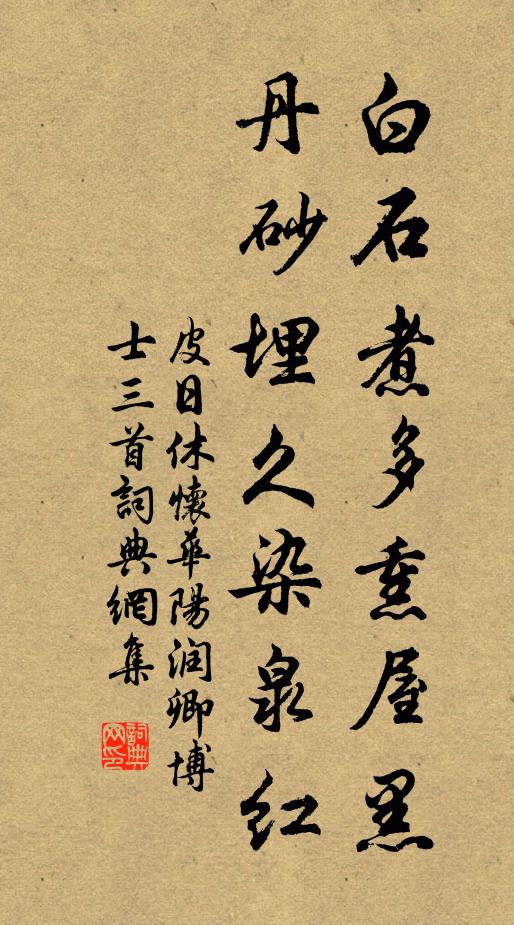 白石煮多熏屋黑
丹砂埋久染泉红
皮日休懷華陽润卿博
士三首詞典網集
詞典网印